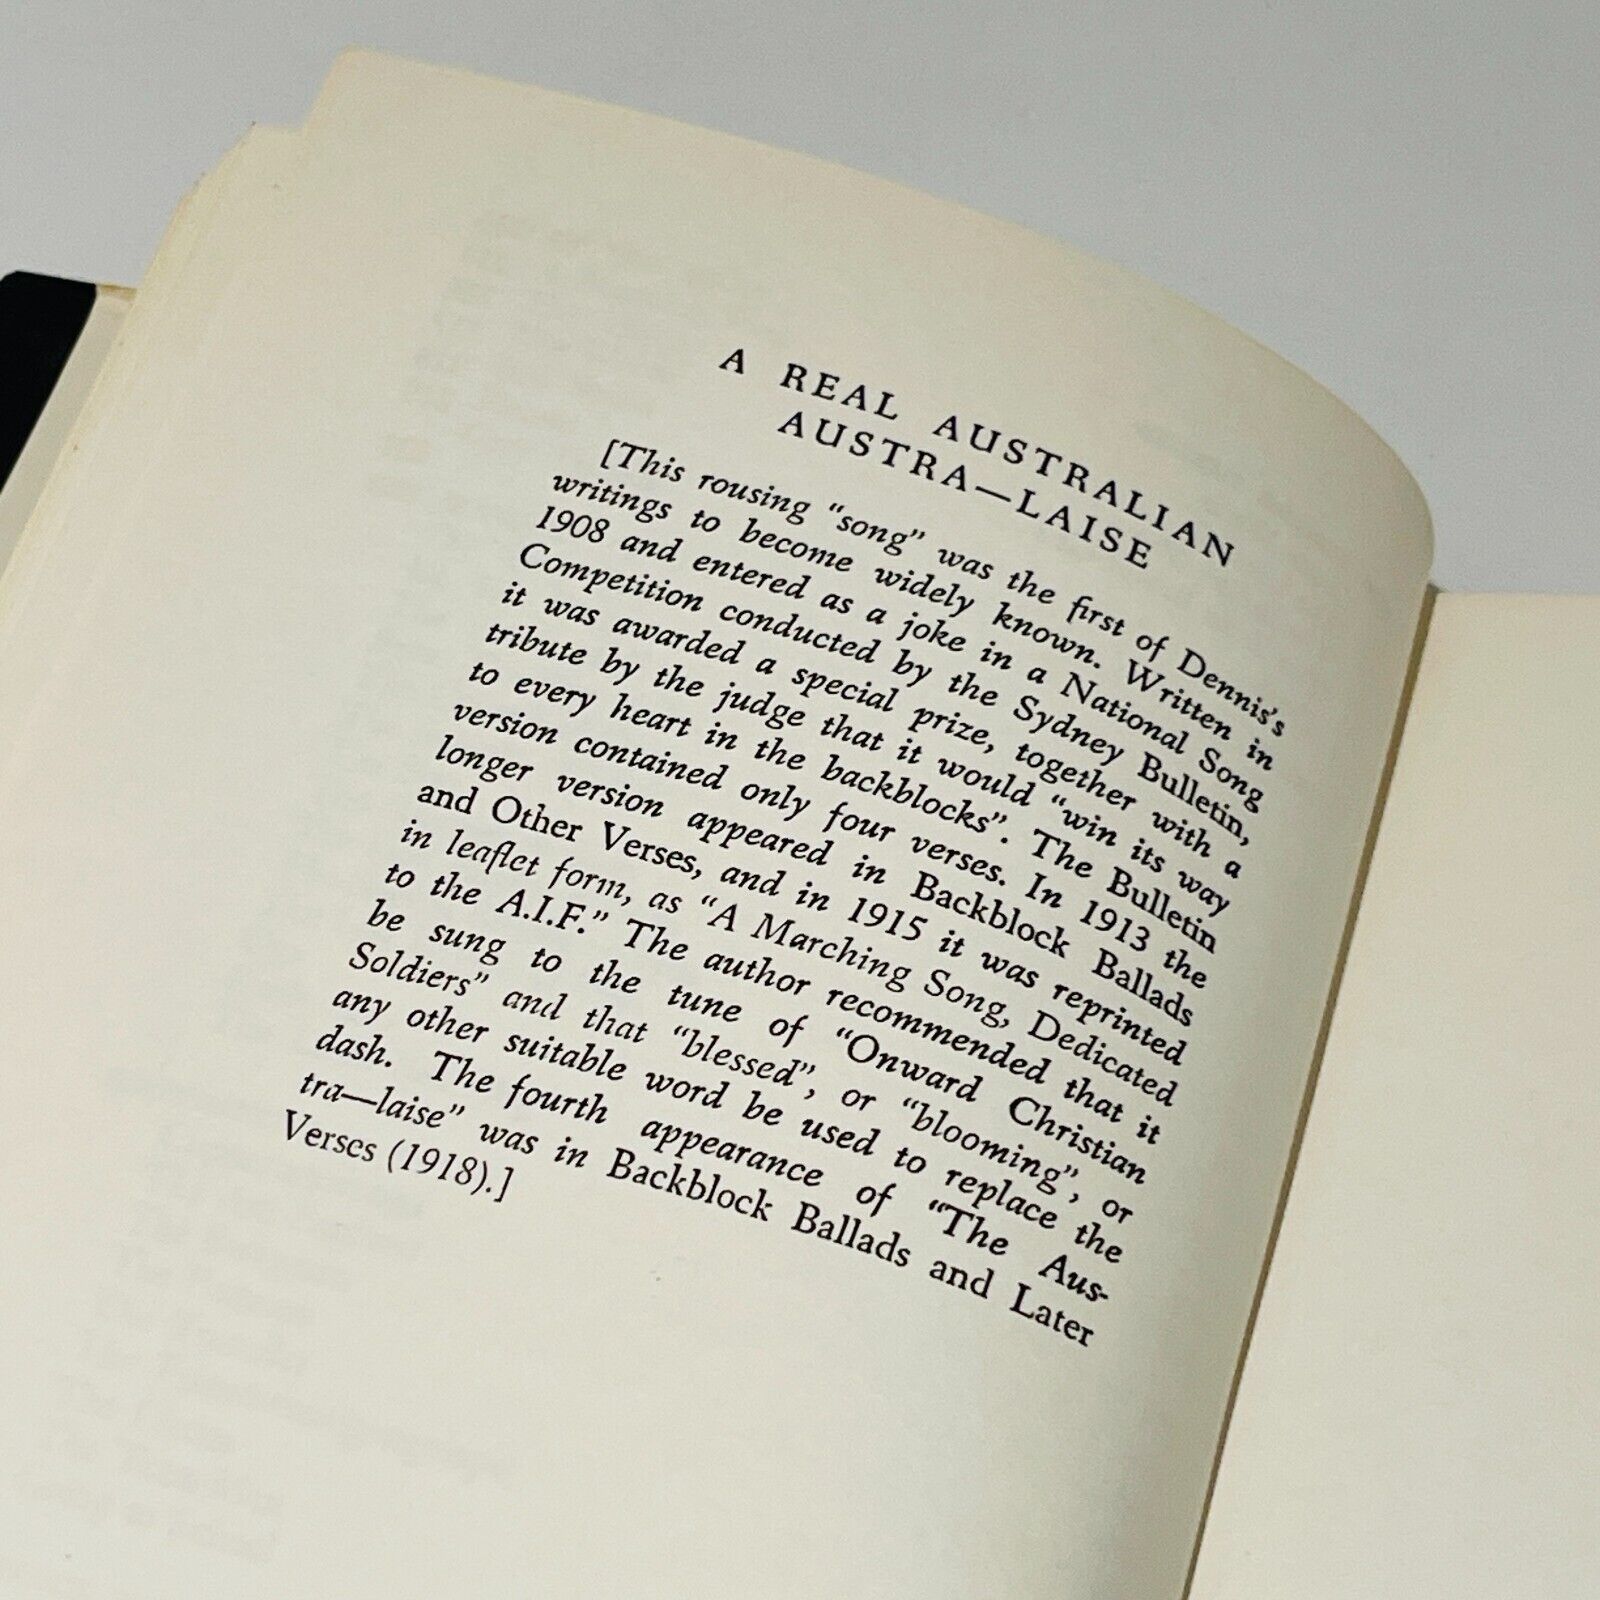 A REAL AUSTRALIAN
AUSTRA—LAISE
[This rousing "song" was the first of Dennis's
writings to become widely known. Written in
1908 and entered as a joke in a National Song
Competition conducted by the Sydney Bulletin,
it was awarded a special prize, together with a
tribute by the judge that it would "win its way
to every heart in the backblocks". The Bulletin
version contained only four verses. In 1913 the
longer version appeared in Backblock Ballads
and Other Verses, and in 1915 it was reprinted
in leaflet form, as "A Marching Song, Dedicated
to the A.I.F." The author recommended that it
be sung to the tune of "Onward Christian
Soldiers" and that "blessed", or "blooming", or
any other suitable word be used to replace the
dash. The fourth appearance of "The Aus-
tra—laise" was in Backblock Ballads and Later
Verses (1918).]